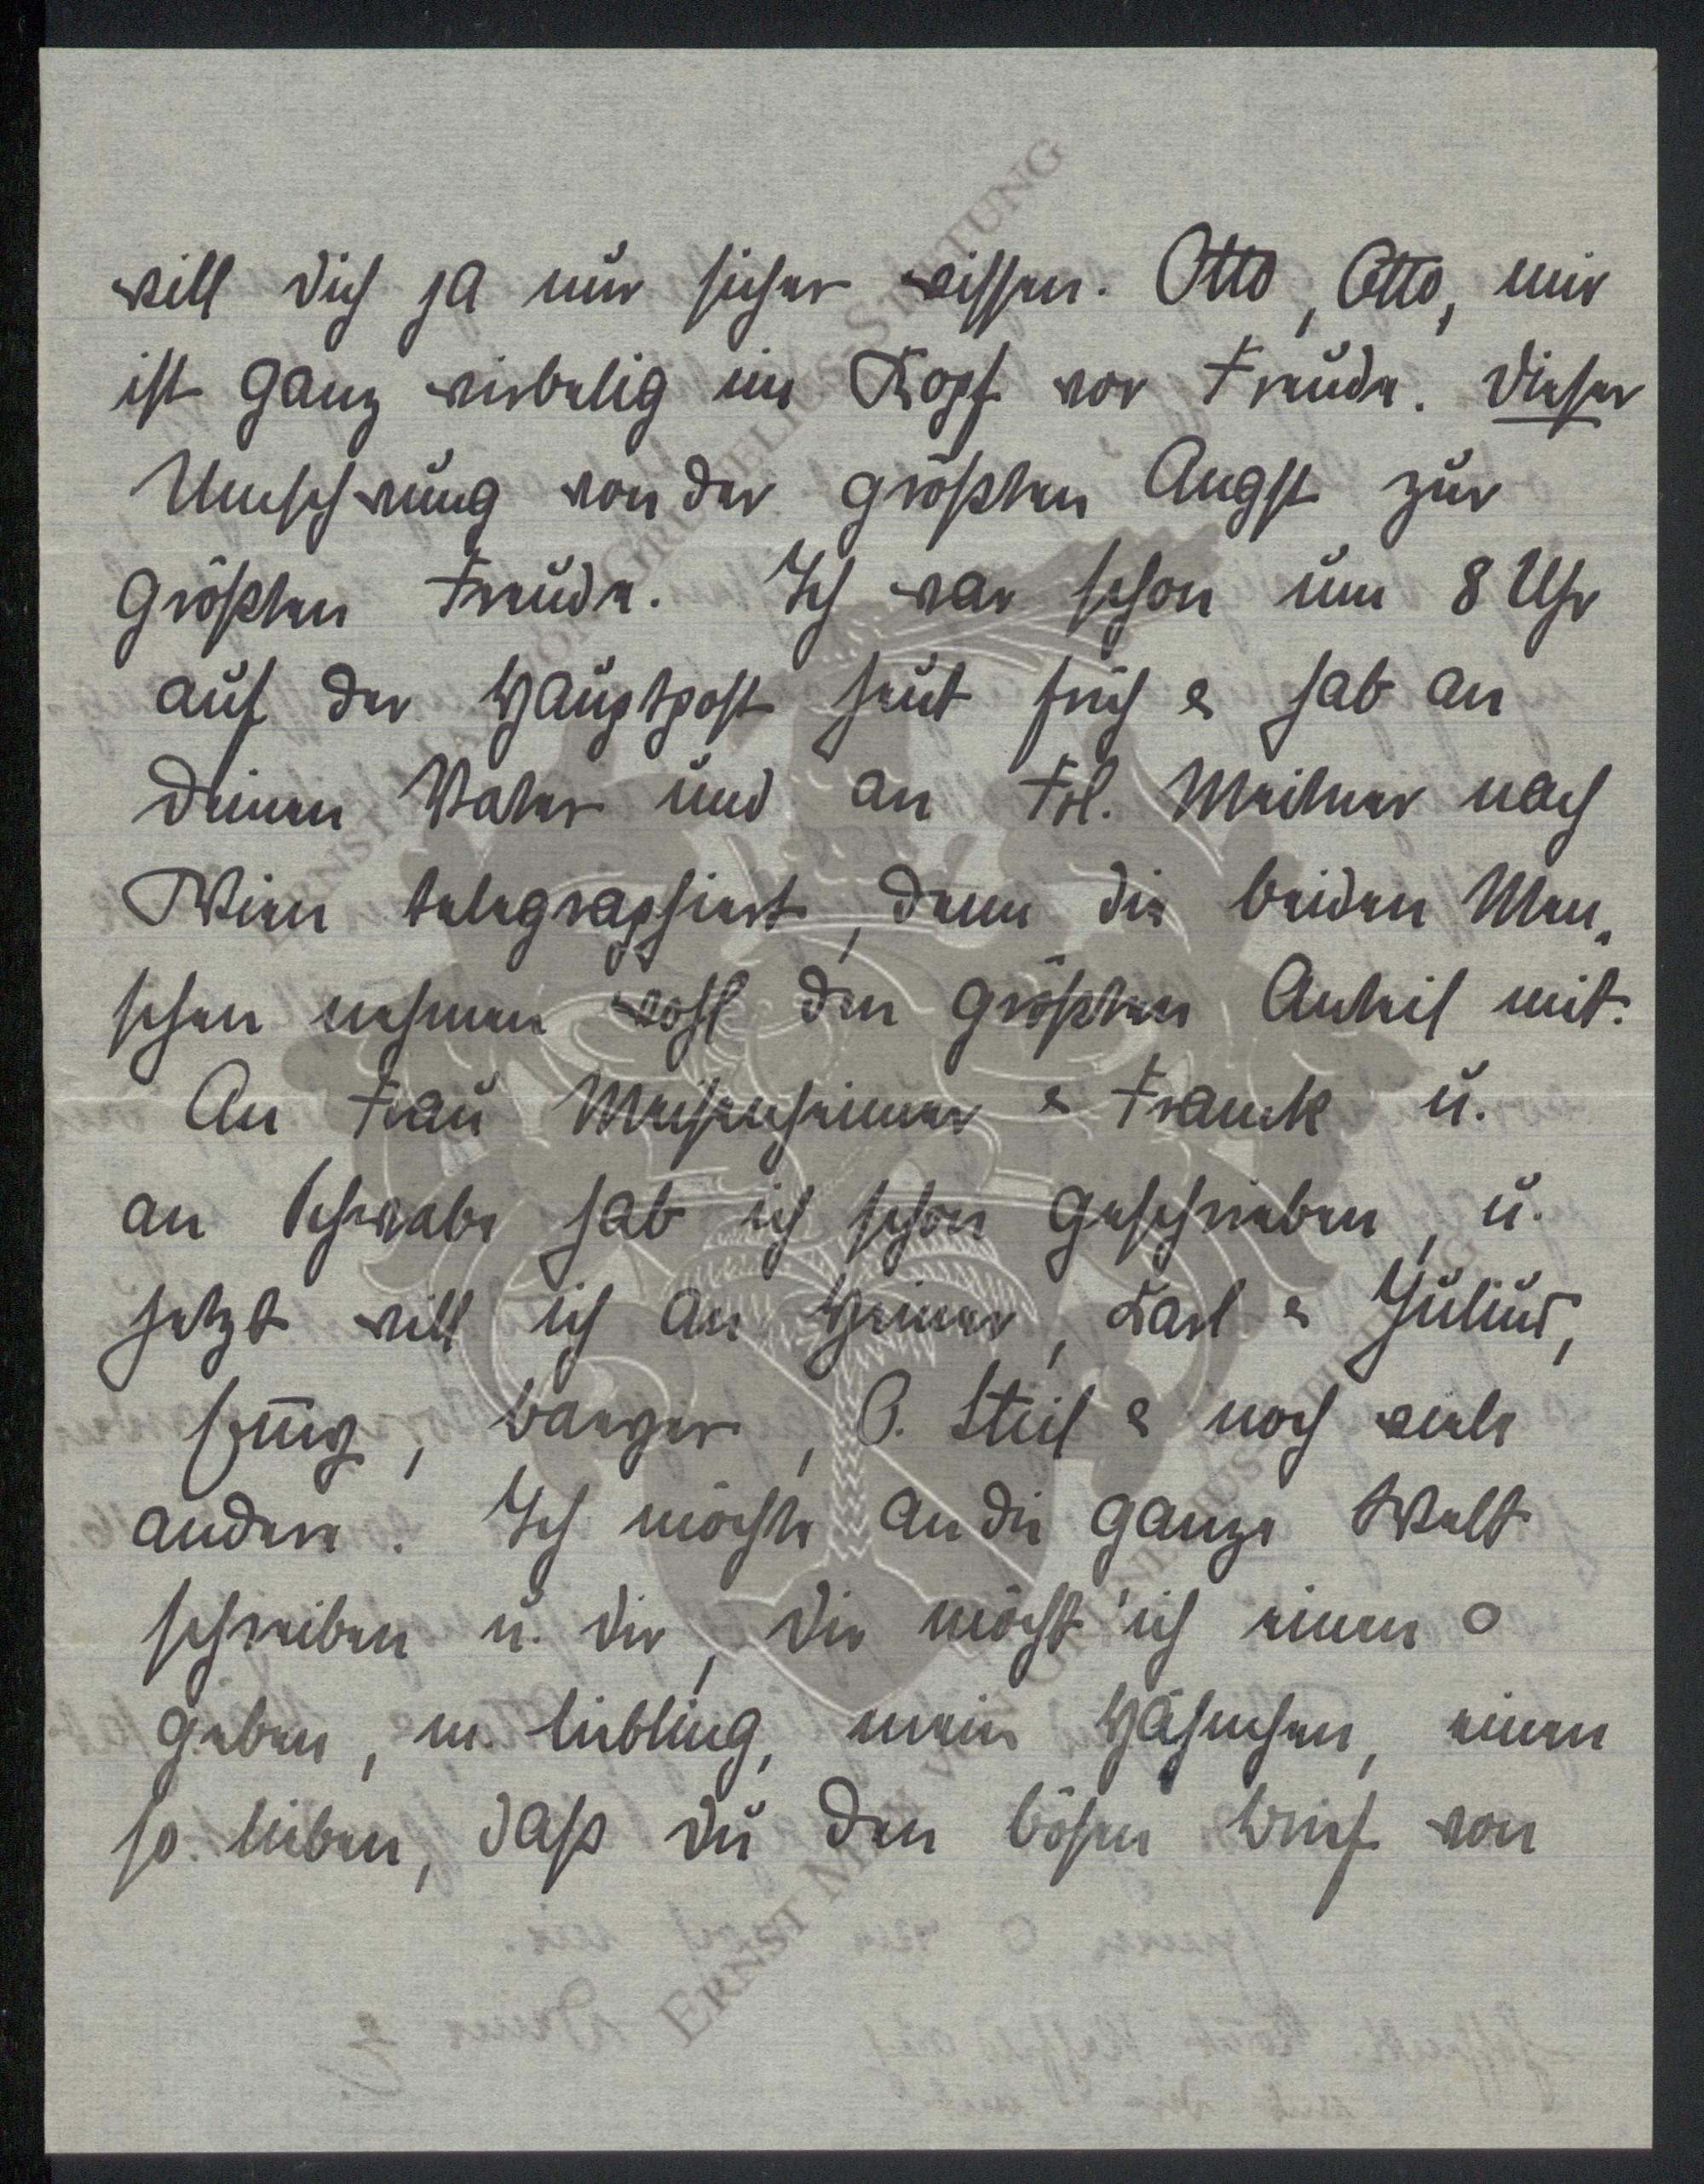 will dich ja nur sicher wissen. Otto, Otto, mir
ist ganz wirbelig im Kopf vor Freude. Dieser
Umschwung von der größten Angst zur
größten Freude. Ich war schon um 8 Uhr
auf der Hauptpost heut früh & hab an
Deinen Vater und an Frl. Meitner nach
Wien telegraphiert, denn die beiden Men„
schen nehmen wohl den größten Anteil mit.
An Frau Meisenheimer & Franck u.
an Schwabe hab ich schon geschrieben, u.
jetzt will ich an Heiner, Karl & Julius,
Baeyer, O. Steil & noch viele
andere. Ich möchte an die ganze Welt
schreiben u. dir, dir möcht' ich einen o
geben, m. Liebling, mein Hähnchen, einen
so lieben, daß du den bösen Brief von
ERNST MAX VON GRUNELIUS-STIFTUNG
ERNST MAX VON GRUNELIUS-STIFTUNG